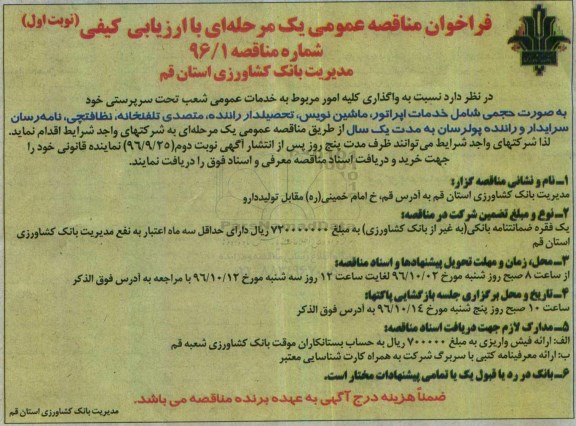 فراخوان مناقصه عمومی یک مرحله‌ای با ارزیابی کیفی (نوبت اول)
شماره مناقصه ۹۶/۱
مدیریت بانک کشاورزی استان قم
در نظر دارد نسبت به واگذاری کلیه امور مربوط به خدمات عمومی شعب تحت سرپرستی خود
به صورت حجمی شامل خدمات اپراتور، ماشین نویس، تحصیلدار راننده، متصدی تلفنخانه، نظافتچی، نامه‌رسان
سرایدار و راننده پولرسان به مدت یک سال از طریق مناقصه عمومی یک مرحله‌ای به شرکتهای واجد شرایط اقدام نماید.
لذا شرکتهای واجد شرایط می‌توانند ظرف مدت پنج روز پس از انتشار آگهی نوبت دوم(۹۶/۹/۲۵) نماینده قانونی خود را
جهت خرید و دریافت اسناد مناقصه معرفی و اسناد فوق را دریافت نمایند.
۱ـ نام و نشانی مناقصه گزار:
مدیریت بانک کشاورزی استان قم به آدرس قم، خ امام خمینی(ره) مقابل تولیددارو
۲ـ نوع و مبلغ تضمین شرکت در مناقصه:
یک فقره ضمانتنامه بانکی(به غیر از بانک کشاورزی) به مبلغ ۷۲۰۰۰۰۰۰۰ ریال دارای حداقل سه ماه اعتبار به نفع مدیریت بانک کشاورزی
استان قم
۳ـ محل، زمان و مهلت تحویل پیشنهادها و اسناد مناقصه:
از ساعت ۸ صبح روز شنبه مورخ ۹۶/۱۰/۰۲ لغایت ساعت ۱۲ روز سه شنبه مورخ ۹۶/۱۰/۱۲ با مراجعه به آدرس فوق الذکر
۴ـ تاریخ و محل برگزاری جلسه بازگشایی پاکتها:
ساعت ۱۰ صبح روز پنج شنبه مورخ ۹۶/۱۰/۱۴ به آدرس فوق الذکر
۵ـ مدارک لازم جهت دریافت اسناد مناقصه:
الف: ارائه فیش واریزی به مبلغ ۷۰۰۰۰۰ ریال به حساب بستانکاران موقت بانک کشاورزی شعبه قم
ب: ارائه معرفینامه کتبی با سربرگ شرکت به همراه کارت شناسایی معتبر
۶ـ بانک در رد یا قبول یک یا تمامی پیشنهادات مختار است.
ضمناً هزینه درج آگهی به عهده برنده مناقصه می باشد.
مدیریت بانک کشاورزی استان قم